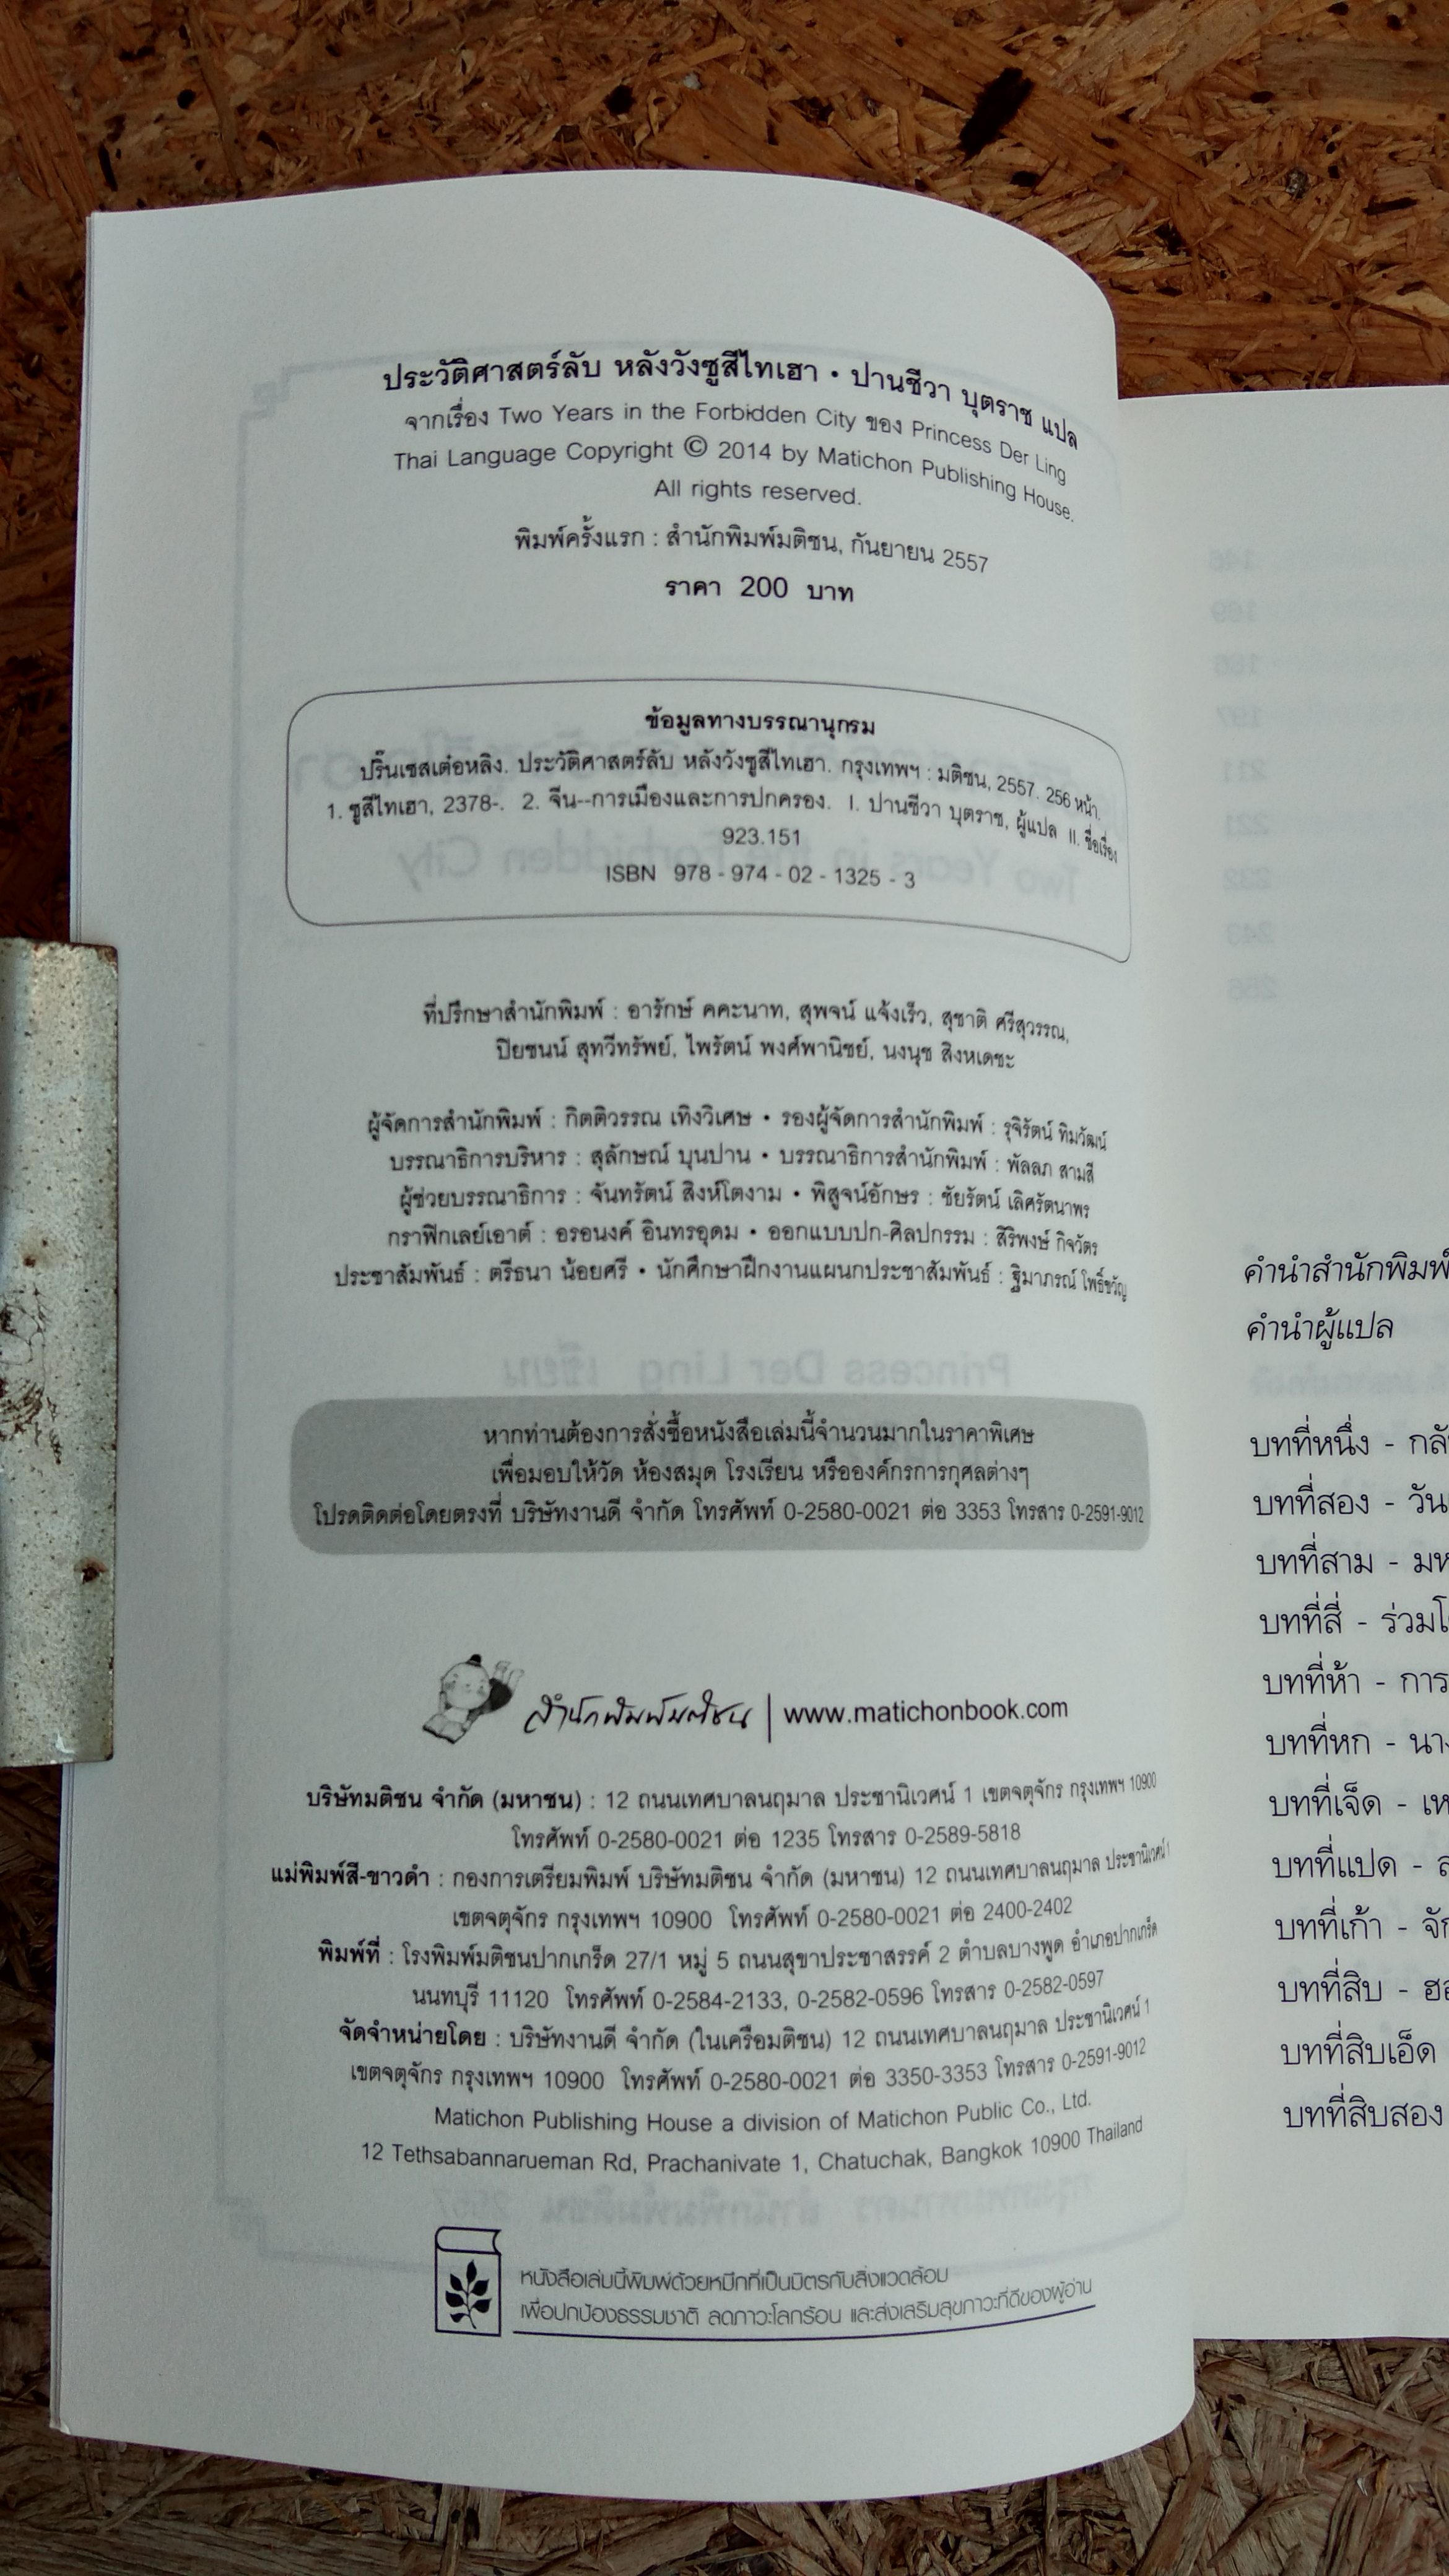 ประวัติศาสตร์ลับ หลังวังซูสีไทเฮา • ปานชีวา บุตราช แปล
จากเรื่อง Two Years in the Forbidden City ของ Princess Der Ling
Thai Language Copyright © 2014 by Matichon Publishing House.
All rights reserved.
พิมพ์ครั้งแรก : สำนักพิมพ์มติชน, กันยายน 2557
ราคา 200 บาท
ข้อมูลทางบรรณานุกรม
ปริ๊นเซสเต๋อหลิง. ประวัติศาสตร์ลับ หลังวังซูสีไทเฮา. กรุงเทพฯ : มติชน, 2557. 256 หน้า.
1. ซูสีไทเฮา, 2378-. 2. จีน--การเมืองและการปกครอง. I. ปานชีวา บุตราช, ผู้แปล II. ชื่อเรื่อง
923.151
ISBN 978 - 974 - 02 - 1325 - 3
ที่ปรึกษาสำนักพิมพ์ : อารักษ์ คคะนาท, สุพจน์ แจ้งเร็ว, สุชาติ ศรีสุวรรณ,
ปิยชนน์ สุทวีทรัพย์, ไพรัตน์ พงศ์พานิชย์, นงนุช สิงหเดชะ
ผู้จัดการสำนักพิมพ์ : กิตติวรรณ เทิงวิเศษ • รองผู้จัดการสำนักพิมพ์ : รุจิรัตน์ ทิมวัฒน์
บรรณาธิการบริหาร : สุลักษณ์ บุนปาน • บรรณาธิการสำนักพิมพ์ : พัลลภ สามสี
ผู้ช่วยบรรณาธิการ : จันทรัตน์ สิงห์โตงาม • พิสูจน์อักษร : ชัยรัตน์ เลิศรัตนาพร
กราฟิกเลย์เอาต์ : อรอนงค์ อินทรอุดม • ออกแบบปก-ศิลปกรรม : สิริพงษ์ กิจวัตร
ประชาสัมพันธ์ : ตรีธนา น้อยศรี • นักศึกษาฝึกงานแผนกประชาสัมพันธ์ : ฐิมาภรณ์ โพธิ์ขวัญ
หากท่านต้องการสั่งซื้อหนังสือเล่มนี้จำนวนมากในราคาพิเศษ
เพื่อมอบให้วัด ห้องสมุด โรงเรียน หรือองค์กรการกุศลต่างๆ
โปรดติดต่อโดยตรงที่ บริษัทงานดี จำกัด โทรศัพท์ 0-2580-0021 ต่อ 3353 โทรสาร 0-2591-9012
สำนักพิมพ์มติชน | www.matichonbook.com
บริษัทมติชน จำกัด (มหาชน) : 12 ถนนเทศบาลนฤมาล ประชานิเวศน์ 1 เขตจตุจักร กรุงเทพฯ 10900
โทรศัพท์ 0-2580-0021 ต่อ 1235 โทรสาร 0-2589-5818
แม่พิมพ์สี-ขาวดำ : กองการเตรียมพิมพ์ บริษัทมติชน จำกัด (มหาชน) 12 ถนนเทศบาลนฤมาล ประชานิเวศน์ 1
เขตจตุจักร กรุงเทพฯ 10900 โทรศัพท์ 0-2580-0021 ต่อ 2400-2402
พิมพ์ที่ : โรงพิมพ์มติชนปากเกร็ด 27/1 หมู่ 5 ถนนสุขาประชาสรรค์ 2 ตำบลบางพูด อำเภอปากเกร็ด
นนทบุรี 11120 โทรศัพท์ 0-2584-2133, 0-2582-0596 โทรสาร 0-2582-0597
จัดจำหน่ายโดย : บริษัทงานดี จำกัด (ในเครือมติชน) 12 ถนนเทศบาลนฤมาล ประชานิเวศน์ 1
เขตจตุจักร กรุงเทพฯ 10900 โทรศัพท์ 0-2580-0021 ต่อ 3350-3353 โทรสาร 0-2591-9012
Matichon Publishing House a division of Matichon Public Co., Ltd.
12 Tethsabannarueman Rd, Prachanivate 1, Chatuchak, Bangkok 10900 Thailand
หนังสือเล่มนี้พิมพ์ด้วยหมึกที่เป็นมิตรกับสิ่งแวดล้อม
เพื่อปกป้องธรรมชาติ ลดภาวะโลกร้อน และส่งเสริมสุขภาวะที่ดีของผู้อ่าน
คำนำสำนักพิมพ์
คำนำผู้แปล
บทที่หนึ่ง -
บทที่สอง - วัน
บทที่สาม -
บทที่สี่ -
บทที่ห้า - การ
บทที่หก -
บทที่เจ็ด -
บทที่แปด -
บทที่เก้า -
บทที่สิบ -
บทที่สิบเอ็ด
บทที่สิบสอง